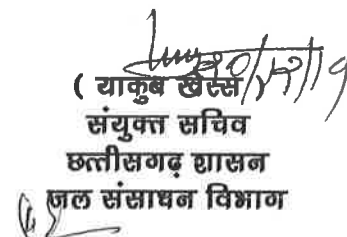 ( याकुब खेस्स
संयुक्त सचिव
छत्तीसगढ़ शासन
जल संसाधन विभाग